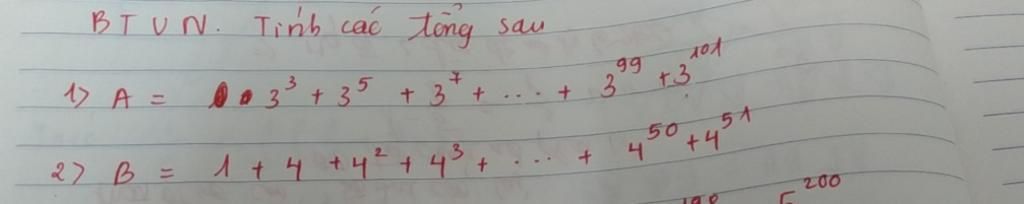 BTVN. Tính các tổng sau
1) A = 3³ + 3⁵ + 3⁷ + ... + 3⁹⁹ + 3¹⁰¹
2) B = 1 + 4 + 4² + 4³ + ... + 4⁵⁰ + 4⁵¹
5²⁰⁰